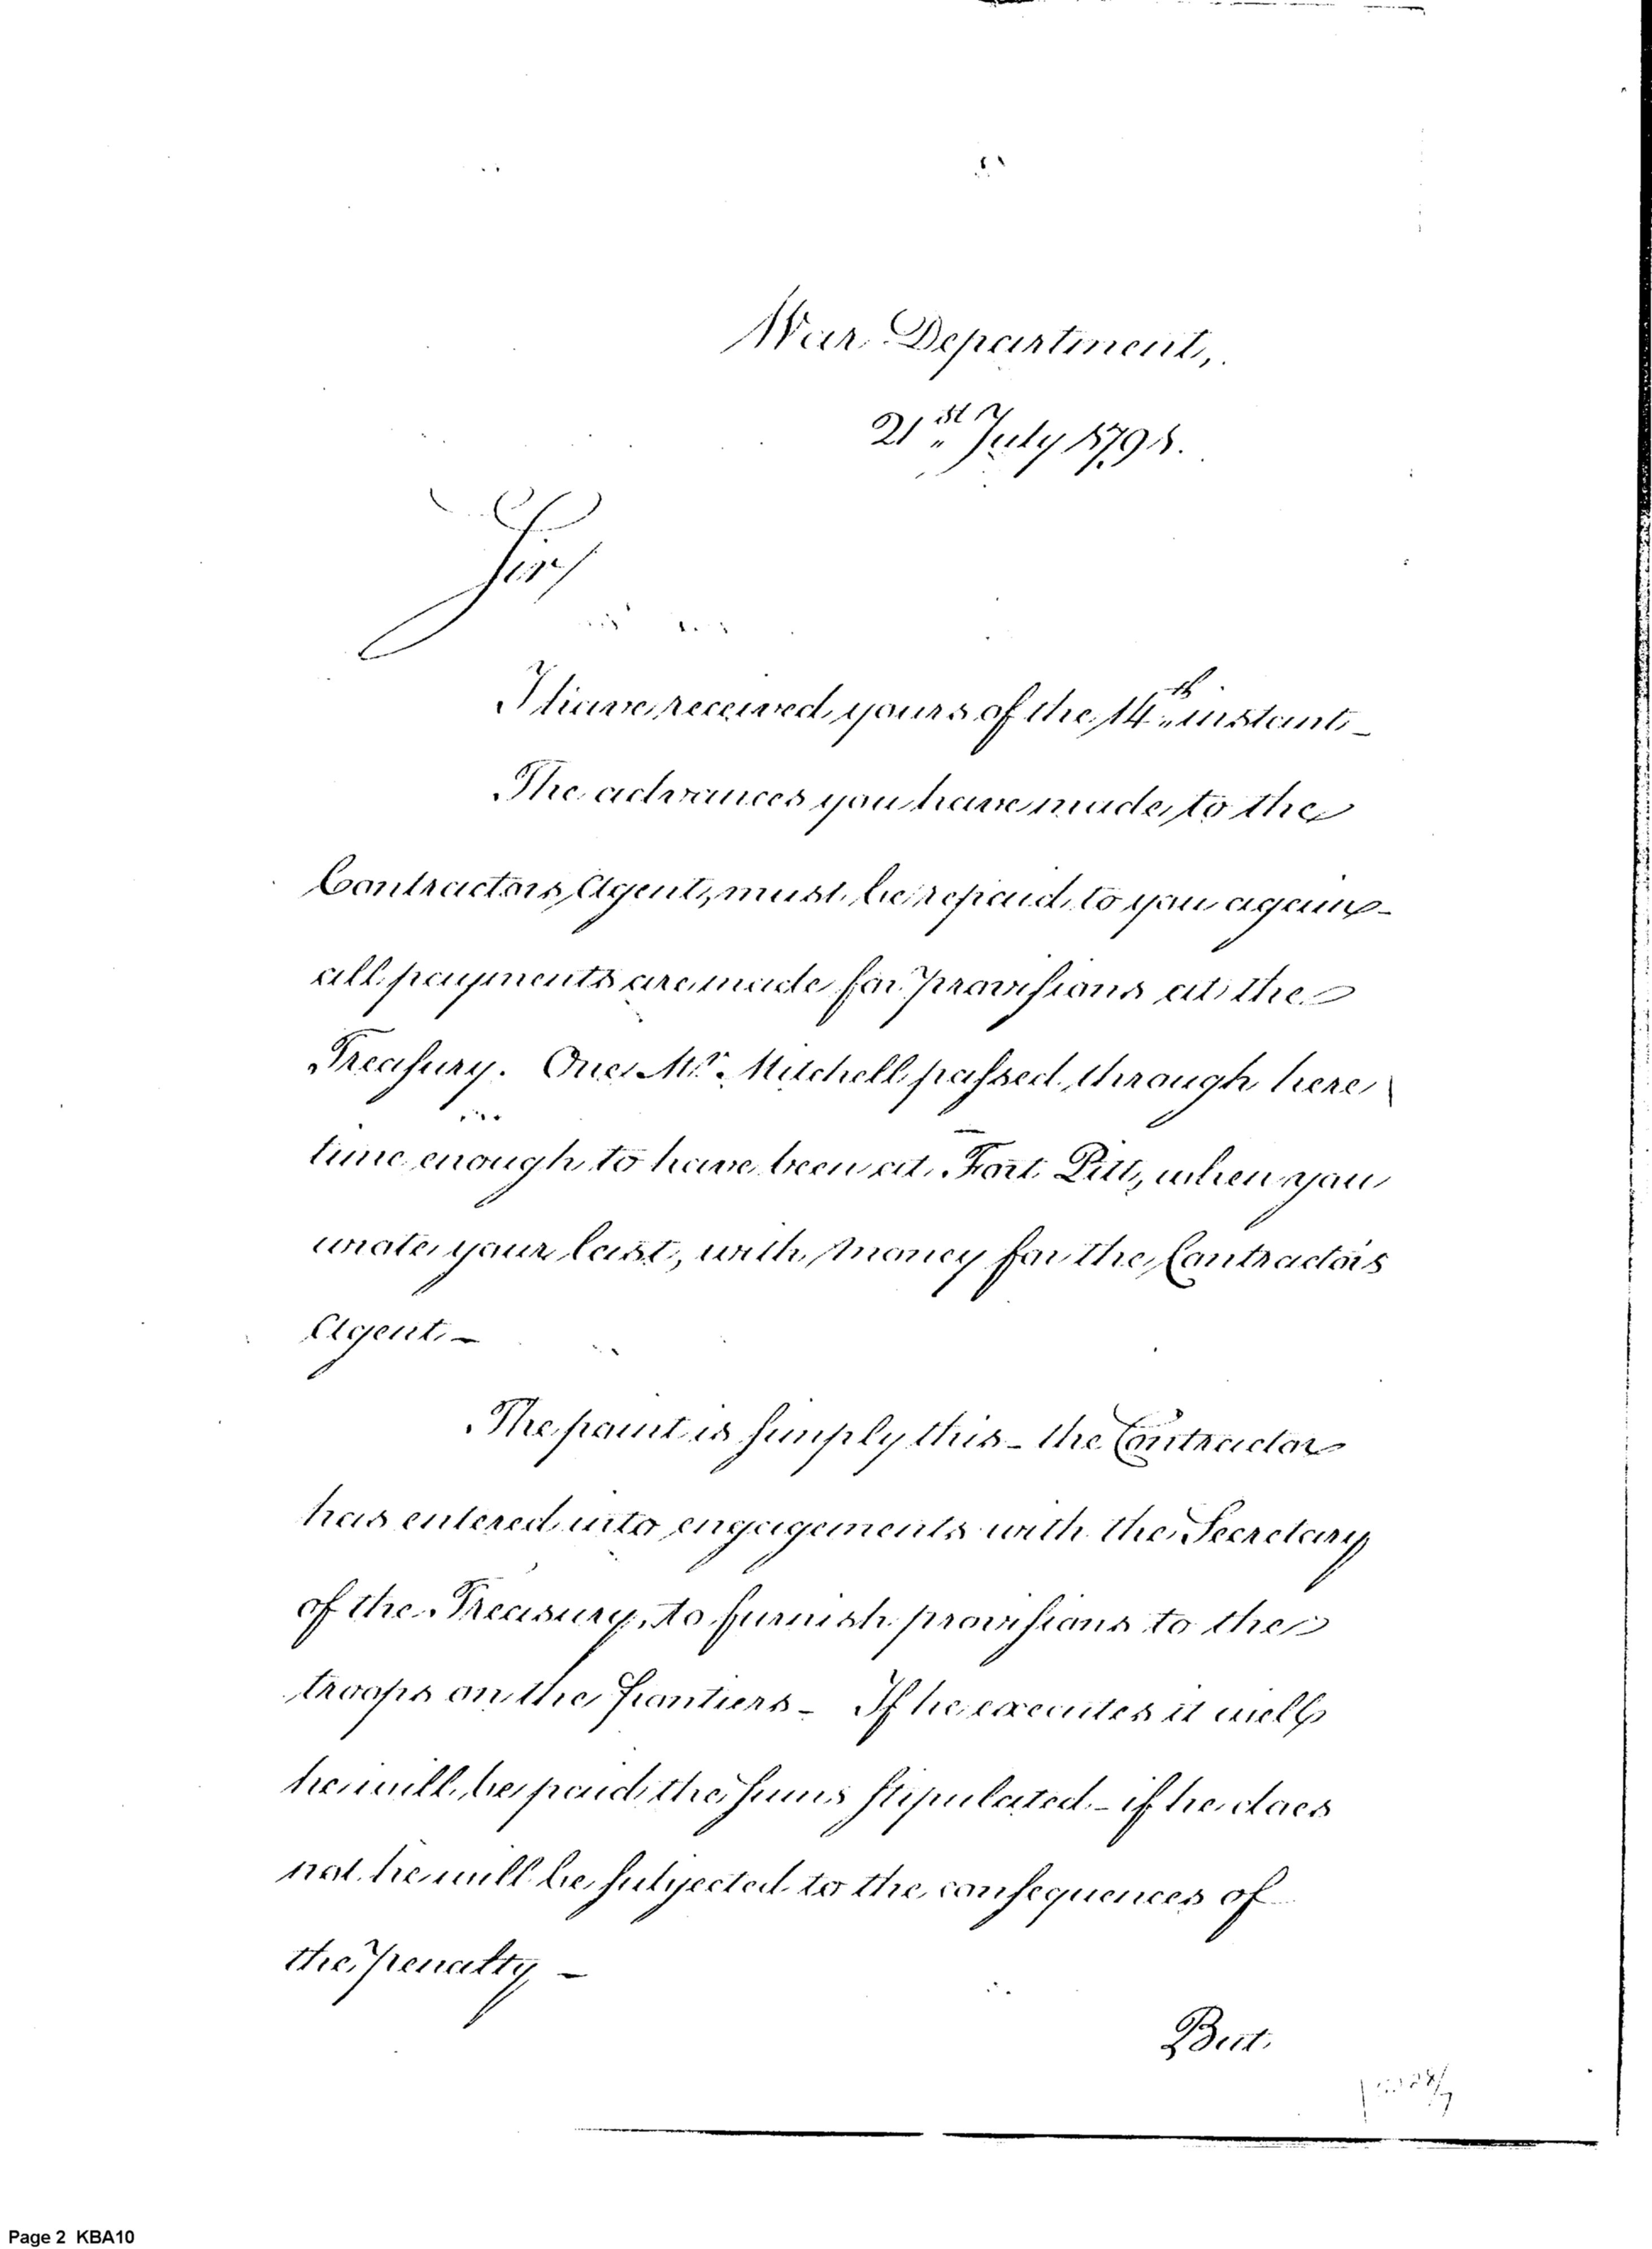 War Department,
21st July 1791.
Sir/
I have received yours of the 14th instant_
The advances you have made to the
Contractors Agent, must be repaid to you again_
all payments are made for provisions at the
Treasury. One Mr. Mitchell passed through here
time enough to have been at Fort Pitt, when you
wrote your last, with money for the Contractors
Agent_
The point is simply this_ the Contractor
has entered into engagements with the Secretary
of the Treasury, to furnish provisions to the
troops on the frontiers_ If he executes it well
he will be paid the sums stipulated_ if he does
not he will be subjected to the consequences of
the penalty_
But
Page 2 KBA10